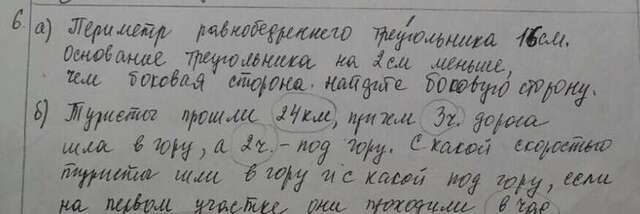 6. а) Периметр равнобедренного треугольника 16см.
Основание треугольника на 2см меньше,
чем боковая сторона. найдите боковую сторону.
б) Туристы прошли 24км, причем 3ч. дорога
шла в гору, а 2ч. - под гору. С какой скоростью
туристы шли в гору и с какой под гору, если
на первом участке они проходили в час